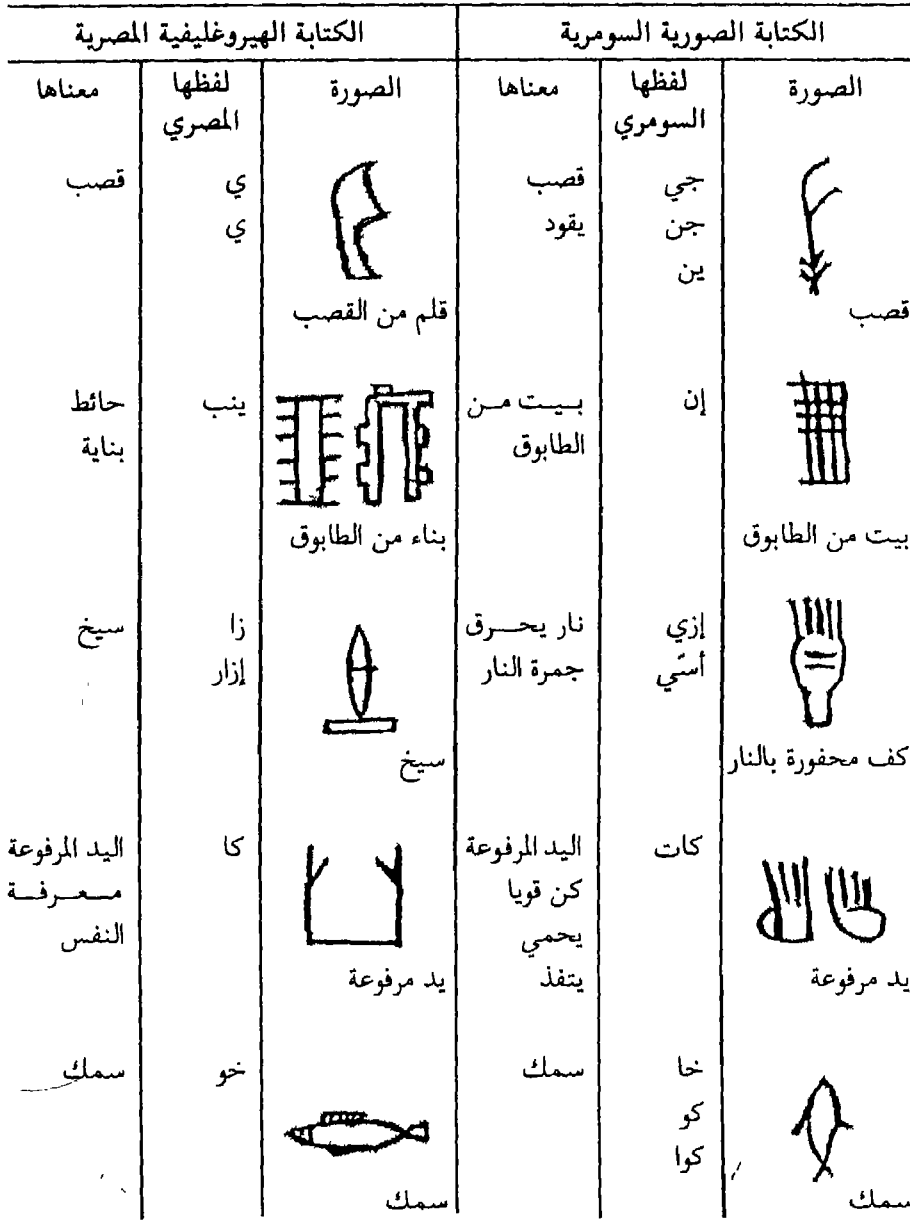 الكتابة الصورية السومرية
الكتابة الهيروغليفية المصرية
الصورة
لفظها
السومري
معناها
الصورة
لفظها
المصري
معناها
قصب
جي
جن
ين
قصب
يقود
قلم من القصب
ي
ي
قصب
بيت من الطابوق
إن
بيت من
الطابوق
بناء من الطابوق
ينب
حائط
بناية
كف محفورة بالنار
إزي
أسّي
نار يحرق
جمرة النار
سيخ
زا
إزار
سيخ
يد مرفوعة
كات
اليد المرفوعة
كن قويا
يحمي
يتفذ
يد مرفوعة
كا
اليد المرفوعة
معرفة
النفس
سمك
خا
كو
كوا
سمك
سمك
خو
سمك